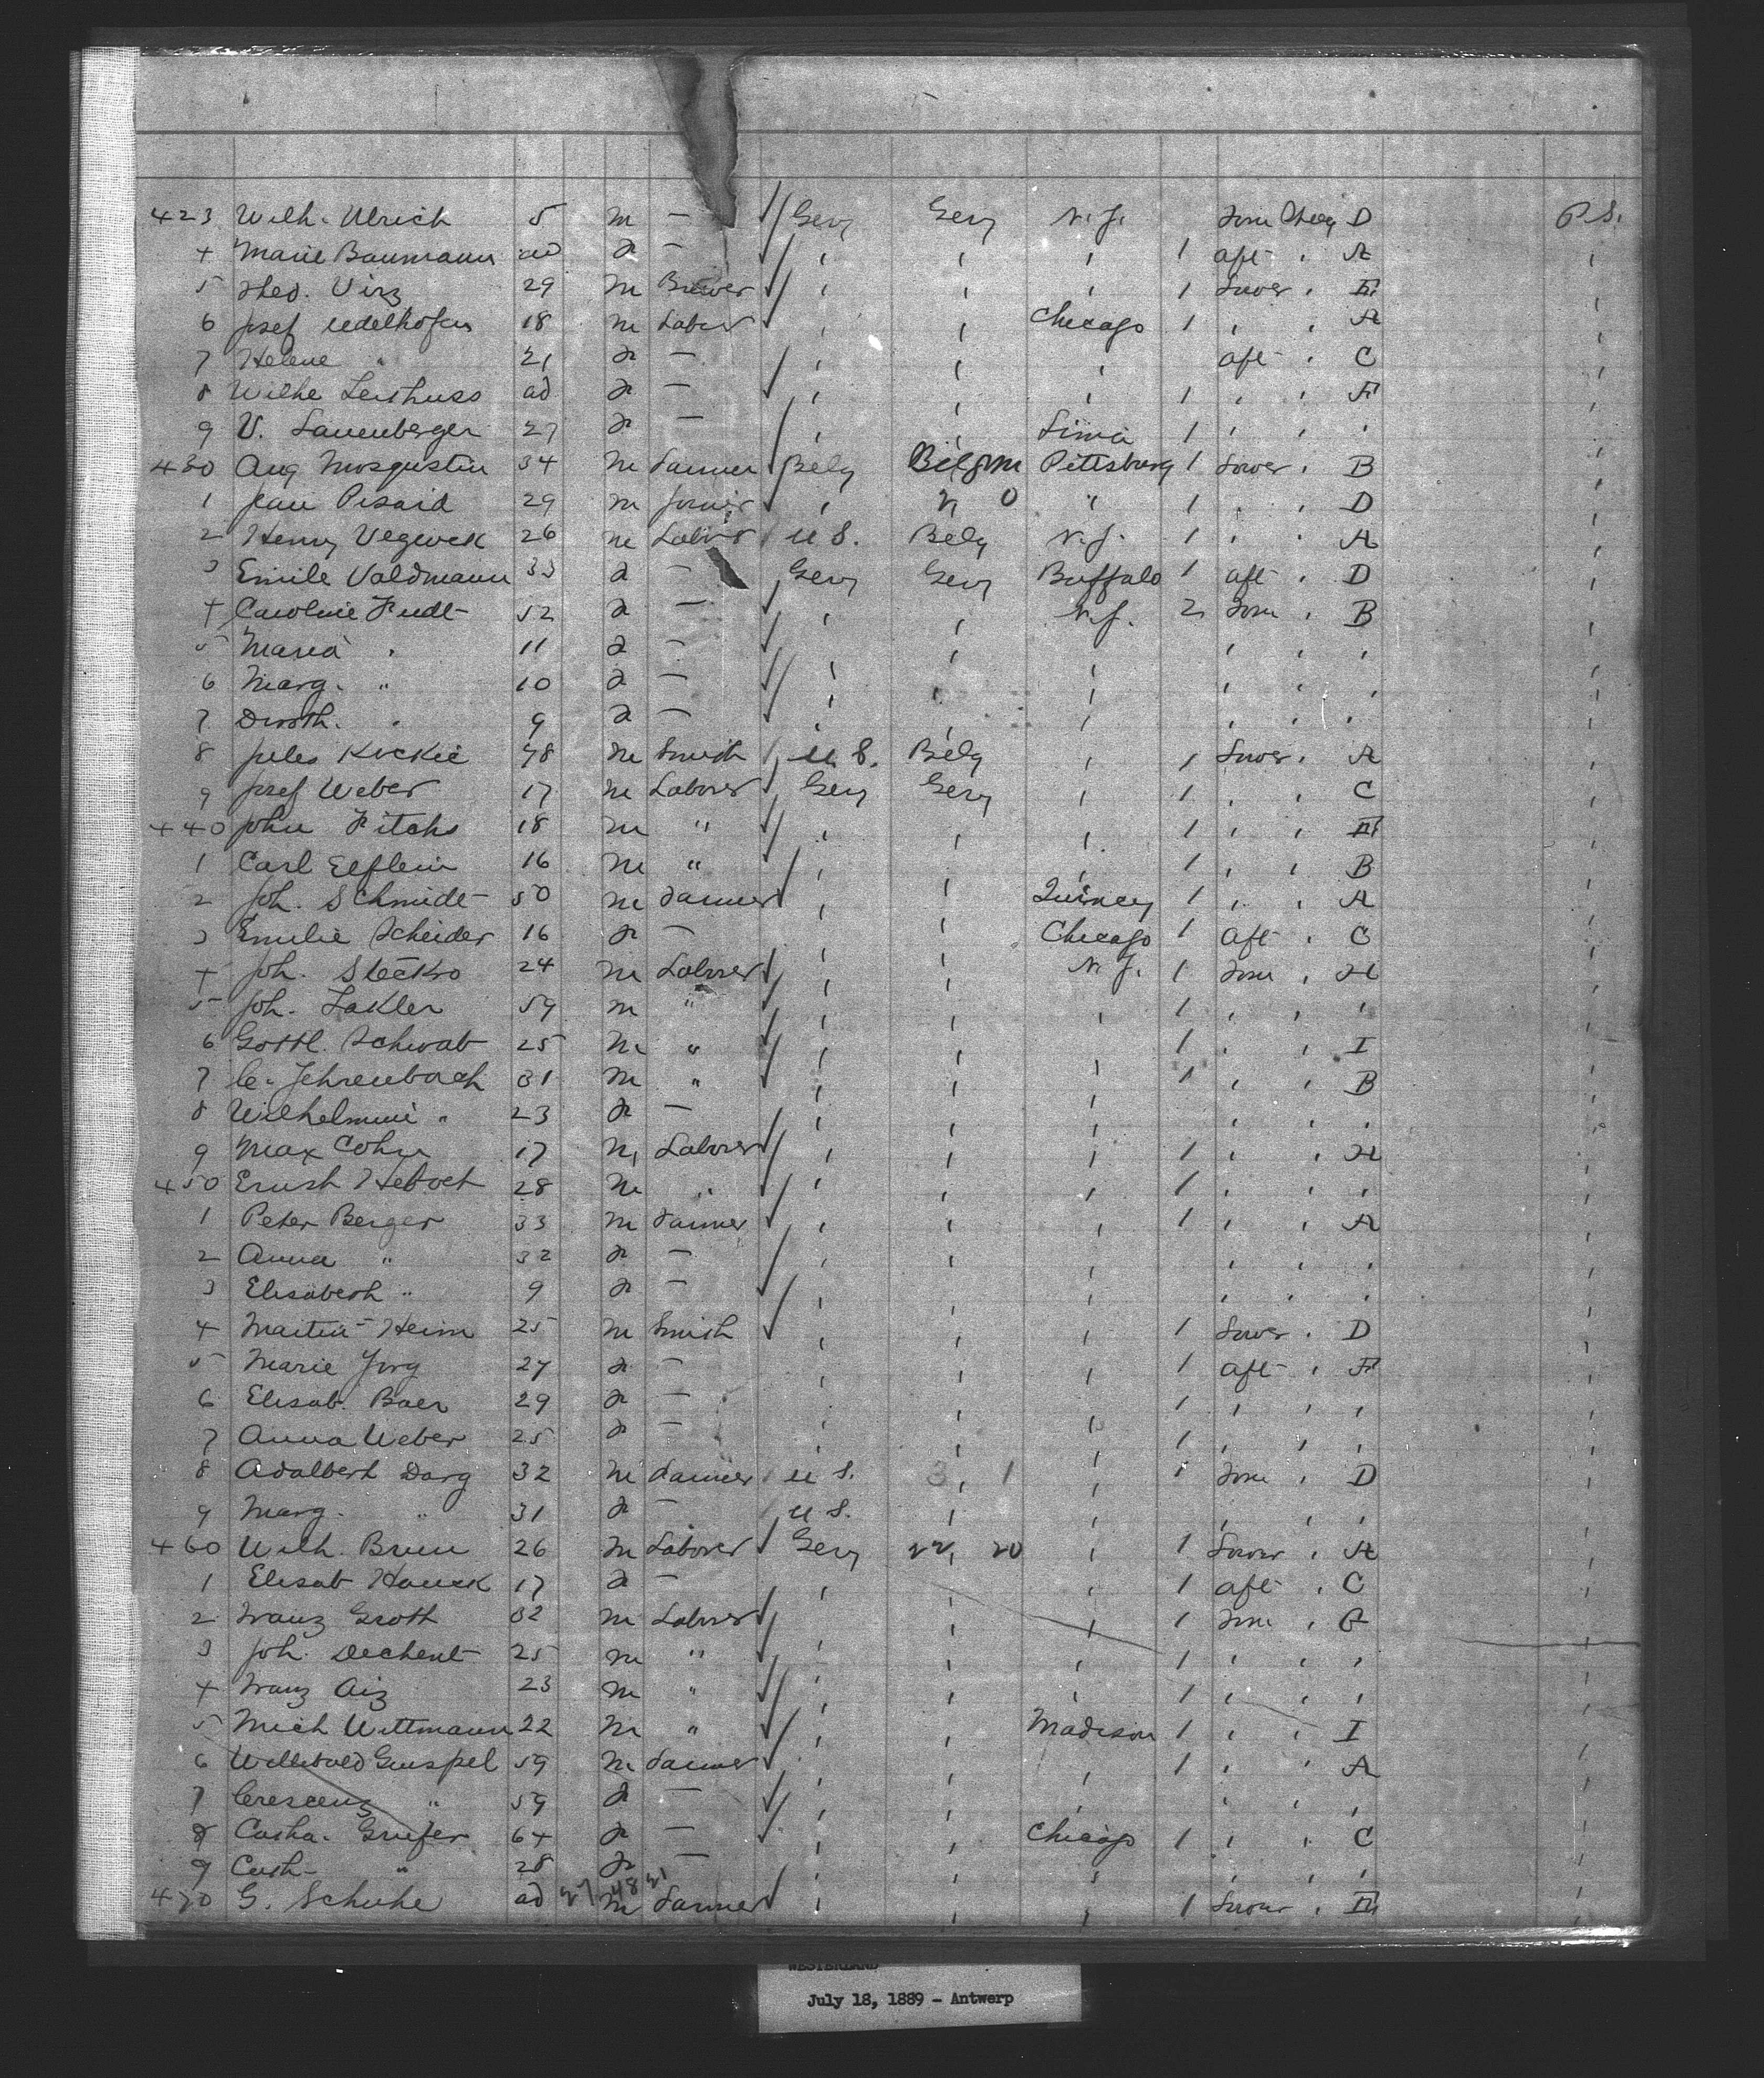 423 Wilh. Ulrich 5 m — Gery Gery N.Y. D P.S.
4 Marie Baumann ad f — " " " 1 aft " A "
5 Theo. Virz 29 m Brewer " " " 1 Lower " E "
6 Josef Udelhofen 18 m Labor " " Chicago 1 " " A "
7 Helene " 21 f — " " " aft " C "
8 Wilhe ad f — " " " 1 " " F "
9 V. Lauenberger 27 f — " " Lima 1 " " " "
430 Aug Mosgustin 34 m Farmer Belg Belgm Pittsburg 1 Lower " B "
1 Jean Pisaid 29 m Joiner " " 0 " 1 " " D "
2 Henry Vegweck 26 m Labor U S. Belg N.Y. 1 " " A "
3 Emile Valdmann 33 f — Gery Gery Buffalo 1 aft " D "
4 Caroline 52 f — " " N.Y. 2 " B "
5 Maria " 11 f — " " " " " " "
6 Marg. " 10 f — " " " " " " "
7 Doroth. " 9 f — " " " " " " "
8 Jules Kockie 48 m Smith U. S. Belg " 1 Lower " A "
9 Josef Weber 17 m Laborer Gery Gery " 1 " " C "
440 John Fitchs 18 m " " " " 1 " " E "
1 Carl Elflein 16 m " " " " 1 " " B "
2 Joh. Schmidt 50 m Farmer " " Quincey 1 " " A "
3 Emilie Scheider 16 f — " " Chicago 1 aft " C "
4 Joh. Steckro 24 m Laborer " " N.Y. 1 " H "
5 Joh. Lakler 59 m " " " " 1 " " " "
6 Gottl. Schwab 25 m " " " " 1 " " I "
7 C. Fehrenbach 31 m " " " " 1 " " B "
8 Wilhelmine " 23 f — " " " " " " "
9 Max Cohn 17 m Laborer " " " 1 " " H "
450 Ernst 28 m " " " " 1 " " " "
1 Peter Berger 33 m Farmer " " " 1 " " A "
2 Anna " 32 f — " " " " " " "
3 Elisabeth " 9 f — " " " " " " "
4 Martin Heim 25 m Smith " " " 1 Lower " D "
5 Marie Jorg 27 f — " " " 1 aft " F "
6 Elisab. Baer 29 f — " " " 1 " " " "
7 Anna Weber 25 f — " " " 1 " " " "
8 Adalbert Darg 32 m Farmer U S. 3 " 1 " 1 " D "
9 Marg. " 31 f — U S. " " " " " "
460 Wilh. Brun 26 m Laborer Gery 22 " 20 " 1 Lower " A "
1 Elisab Hauck 17 f — " " " 1 aft " C "
2 Franz Groth 32 m Laborer " " " 1 " "
3 Joh. Dechent 25 m " " " " 1 " " " "
4 Franz Aiz 23 m " " " " 1 " " " "
5 Mich Wittmann 22 m " " " Madison 1 " " I "
6 Willibald Gumpel 59 m Farmer " " " 1 " " A "
7 Crescenz " 59 f — " " " " " " "
8 Casha. Griefer 64 f — " " Chicago 1 " " C "
9 Cash " 28 f — " " " " " " "
470 G. Schuhe ad 27 48 21 m Farmer " " " 1 Lower " E "
WESTERLAND
July 18, 1889 - Antwerp